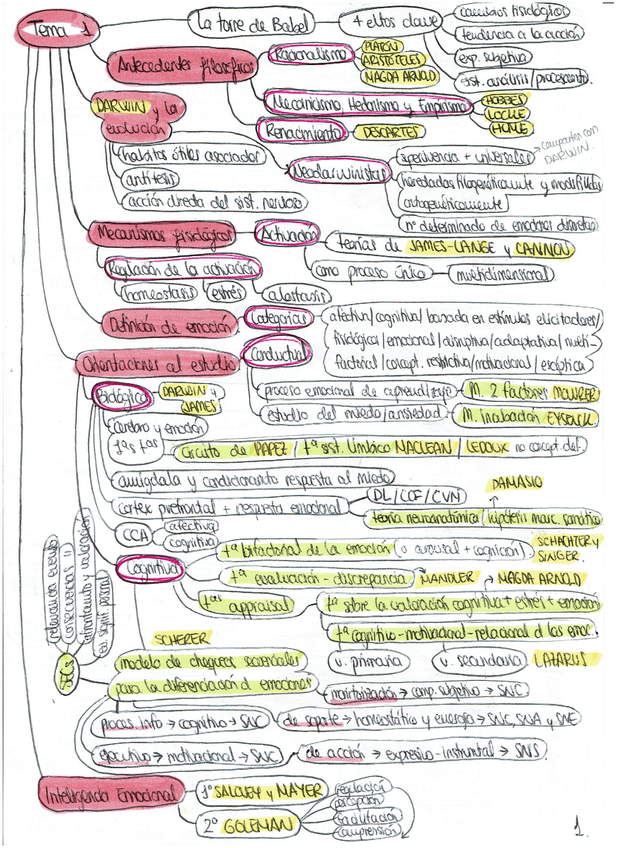 Tema 1
La torre de Babel
4 eltos clave
cambios fisiológicos
tendencia a la acción
exp. subjetiva
sist. análisis/procesamto.
Antecedentes filosóficos
Racionalismo
PLATÓN
ARISTÓTELES
MAGDA ARNOLD
Mecanicismo, Hedonismo y Empirismo
HOBBES
LOCKE
HUME
Renacimiento
DESCARTES
DARWIN y la
evolución
hábitos útiles asociados
antítesis
acción directa del sist. nervioso
Neodarwinistas
supervivencia + universales
comparten con
DARWIN.
heredadas filogenéticamente y modificables
ontogenéticamente
nº determinado de emociones discretas
Mecanismos fisiológicos
Activación
teorías de JAMES-LANGE y CANNON
como proceso único
multidimensional
Regulación de la activación
homeostasis
estrés
alostasis
Definición de emoción
Categorías
afectiva/cognitiva/basada en estímulos elicitadores/
fisiológica/emocional/disruptiva/adaptativa/multi-
factorial/concept. restrictiva/motivacional/escéptica
Orientaciones al estudio
Conductual
proceso emocional de aprendizaje
M. 2 factores MOWRER
estudio del miedo/ansiedad
M. incubación EYSENCK
Biológica
DARWIN y
JAMES
Cerebro y emoción
1ªs tªs
Circuito de PAPEZ / tª sist. límbico MACLEAN / LEDOUX no concept. def.
amígdala y condicionamto respuesta al miedo
cortex prefrontal + respuesta emocional
DL/COF/CVN
DAMASIO
teoría neuroanatómica
hipótesis marc. somático
CCA
afectiva
cognitiva
Cognitiva
tª bifactorial de la emoción (o arousal + cognición)
SCHACHTER y
SINGER.
tª evaluación-discrepancia
MANDLER
MAGDA ARNOLD
tªs appraisal
tª sobre la valoración cognitiva + estrés + emoción
tª cognitivo-motivacional-relacional d las emoc.
v. primaria
v. secundaria
LAZARUS
relevancia evento
consecuencias "
afrontamto y valoración
ev. signif. personal
SCHERER
modelo de chequeos secuenciales
para la diferenciación d emociones
monitorización → comp. subjetivo → SNC
proces. info → cognitivo → SNC
de soporte → homeostático y energía → SNC, SNA y SNE
ejecutivo → motivacional → SNC
de acción → expresivo-instrumtal → SNS.
Inteligencia Emocional
1º SALOVEY y MAYER
2º GOLEMAN
regulación
percepción
facilitación
comprensión
1.